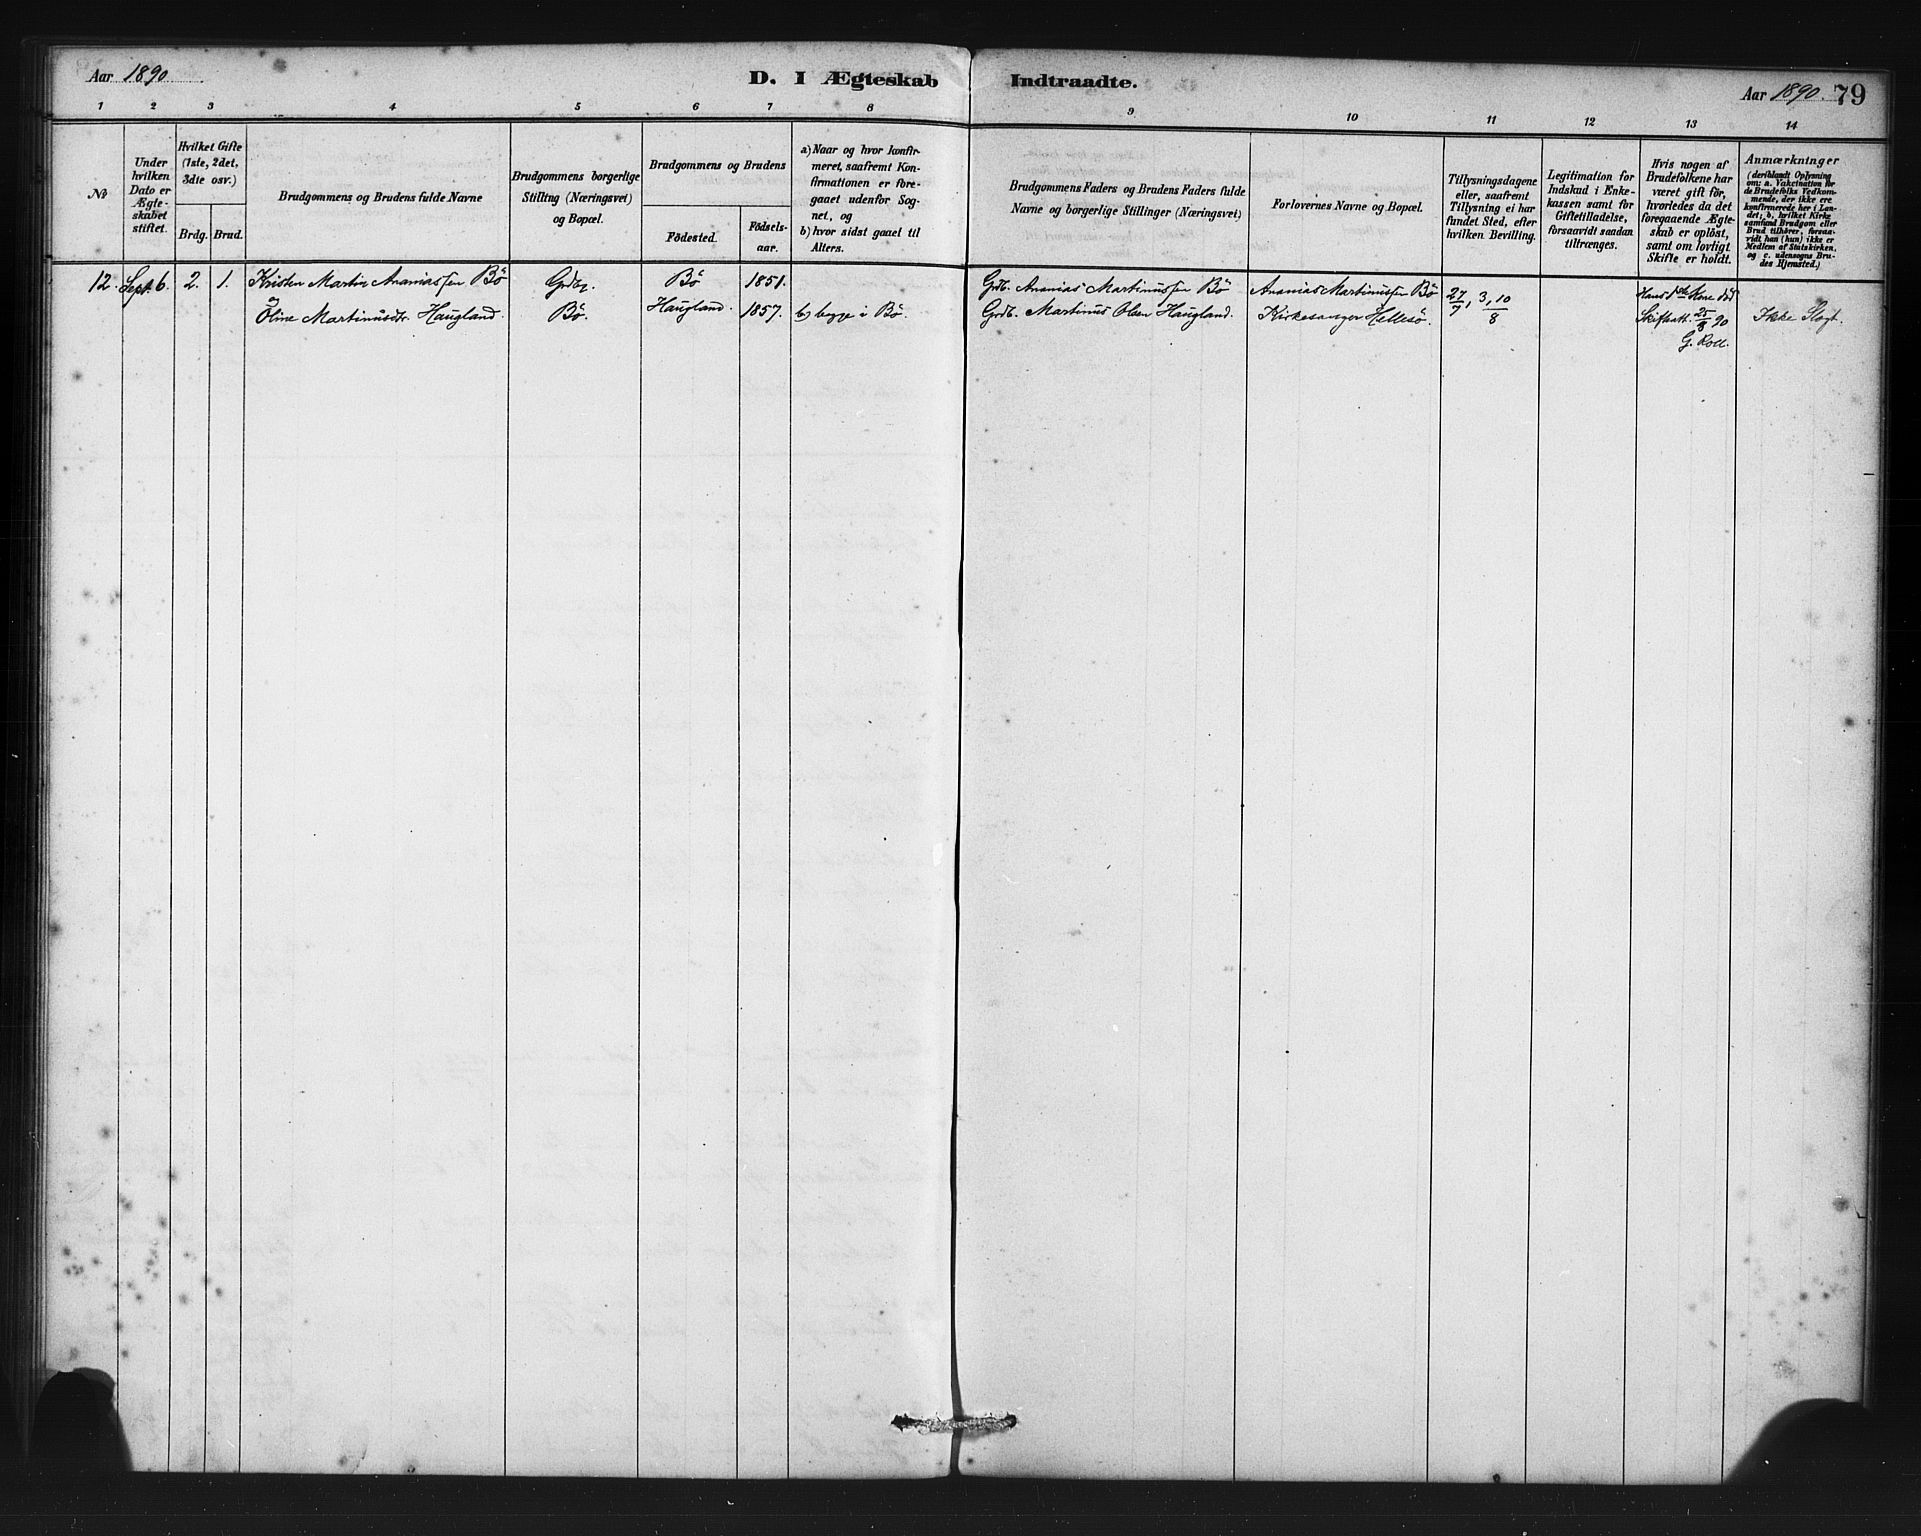 Aar 1890
D. I Ægteskab Indtraadte.
Aar 1890. 79
1 2 3 4 5 6 7 8 9 10 11 12 13 14
No
Under
hvilken
Dato er
Ægte-
skabet
stiftet.
Hvilket Gifte
(1ste, 2det,
3die osv.)
Brdg. Brud.
Brudgommens og Brudens fulde Navne
Brudgommens borgerlige
Stilling (Næringsvei)
og Bopæl.
Brudgommens og Brudens
Födested.
Födsels-
aar.
a) Naar og hvor konfir-
meret, saafremt Kon-
firmationen er fore-
gaaet udenfor Sog-
net, og
b) hvor sidst gaaet til
Alters.
Brudgommens Faders og Brudens Faders fulde
Navne og borgerlige Stillinger (Næringsvei)
Forlovernes Navne og Bopæl.
Tillysningsdagene
eller, saafremt
Tillysning ei har
fundet Sted, efter
hvilken Bevilling.
Legitimation for
Indskud i Enke-
kassen samt for
Giftetilladelse,
forsaavidt saadan
tiltrænges.
Hvis nogen af
Brudefolkene har
været gift för,
hvorledes da det
foregaaende Ægte-
skab er oplöst,
samt om lovligt
Skifte er holdt.
Anmærkninger
(deriblandt Oplysning
om: a. Vakcination for
de Brudefolks Vedkom-
mende, der ikke ere
konfirmerede her i Lan-
det; b. hvilket Kirke
samfund Brudgom eller
Brud tilhörer, forsaa-
vidt han (hun) ikke er
Medlem af Statskirken,
og c. udensogns Bru-
des Hjemsted.)
12. Sept. 6. 2. 1. Kristen Martin Ananiassen Bö Grdbr. Bö 1851. Grdb. Ananias Martinussen Bö Ananias Martinussen Bö 27/7, 3, 10/8 Hans 1ste Kone död
Oline Martinusdr. Haugland. Bö. Haugland. 1857. b) begge i Bö. Grdb. Martinus Olsen Haugland. Kirkesanger Hellesö. Skifteatt. 25/8 90 Ikke Slægt.
G. Roll.